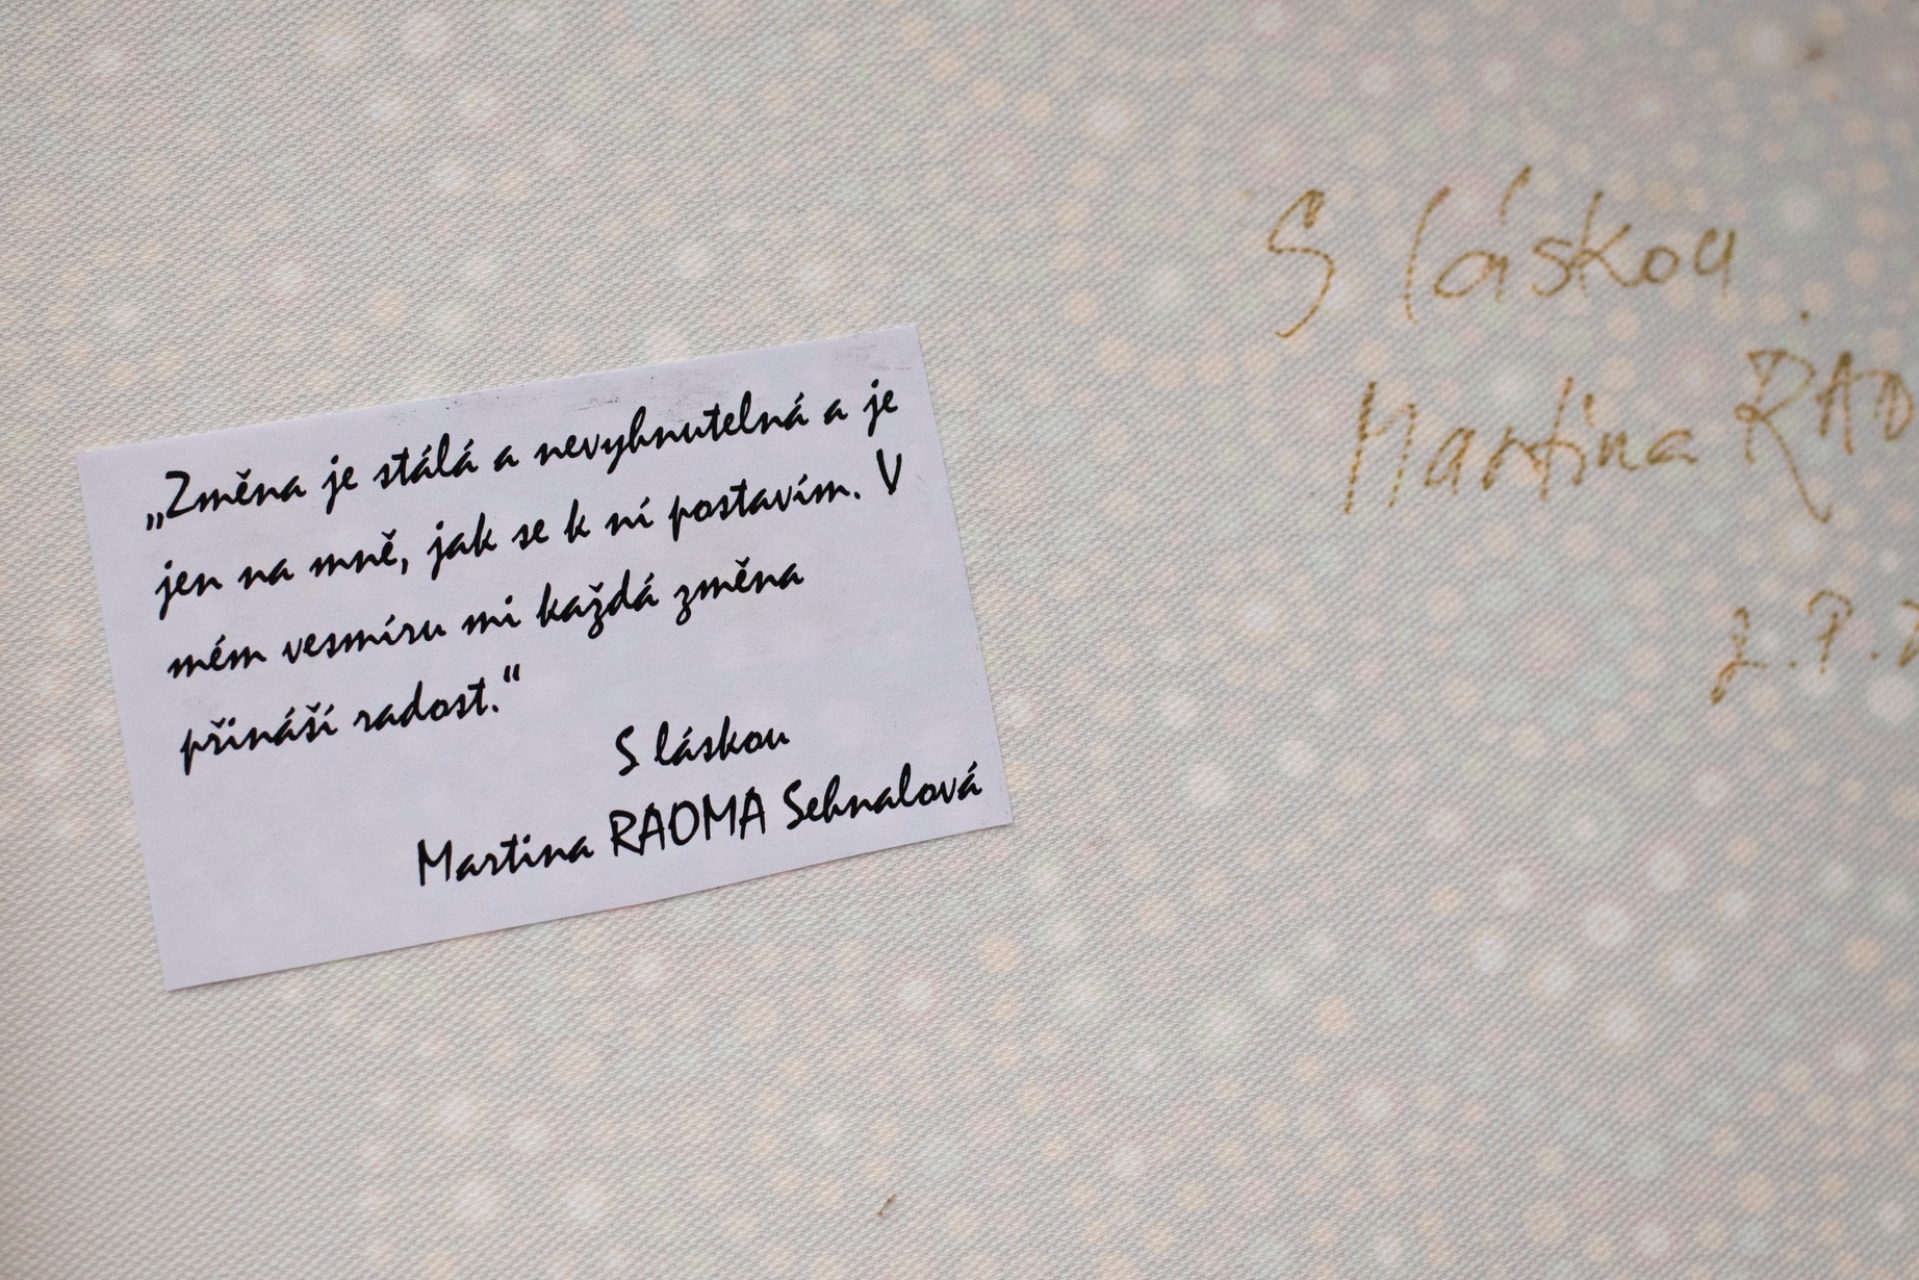 „Změna je stálá a nevyhnutelná a je
jen na mně, jak se k ní postavím. V
mém vesmíru mi každá změna
přináší radost.“
S láskou
Martina RAOMA Sehnalová
S láskou
Martina RAO
2.7.2